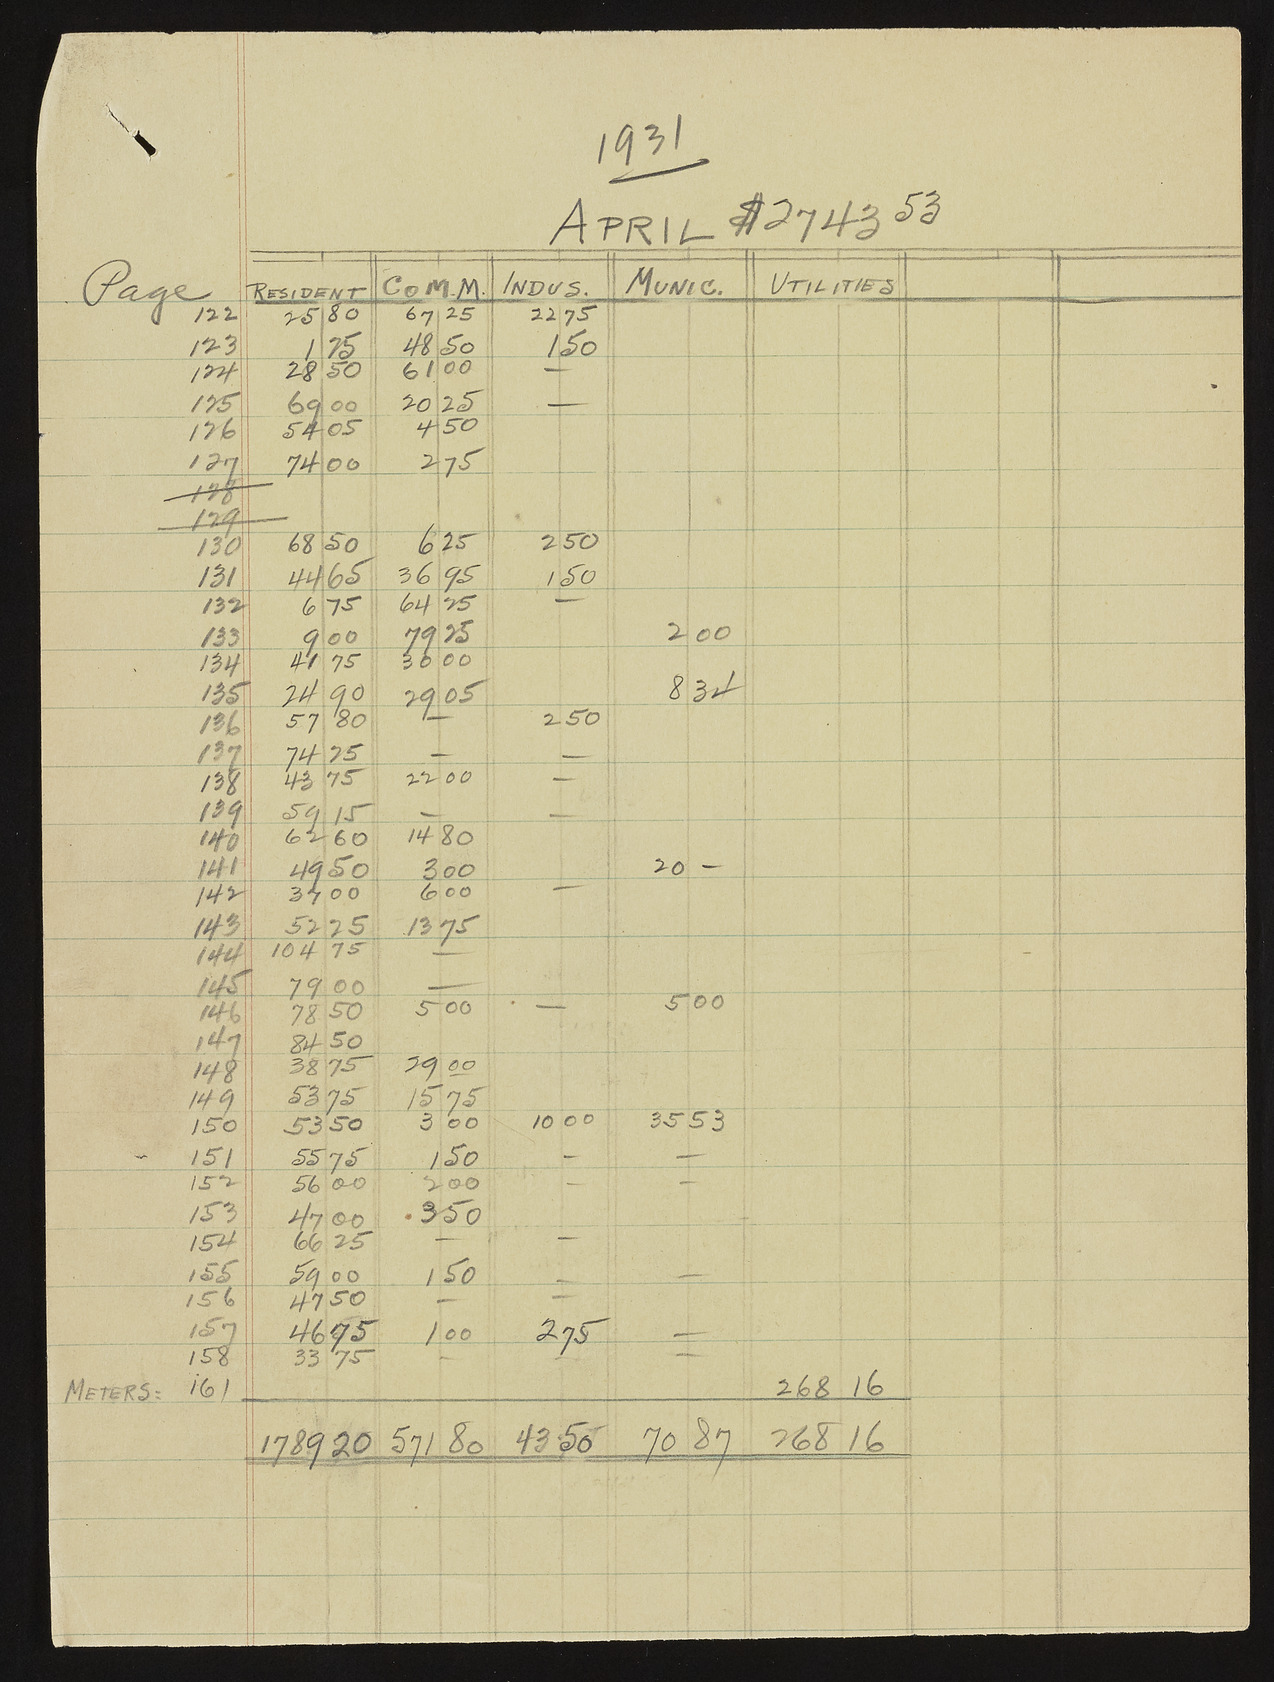 1931
APRIL $2743 53
Page RESIDENT COMM. INDUS. MUNIC. UTILITIES
122 25 80 67 25 22 75
123 1 75 48 50 1 50
124 28 50 61 00 —
125 69 00 20 25 —
126 54 05 4 50
127 74 00 2 75
128
129
130 68 50 6 25 2 50
131 44 65 36 95 1 50
132 6 75 64 25 —
133 9 00 79 25 2 00
134 41 75 30 00
135 24 90 29 05 8 34
136 57 80 — 2 50
137 74 25 — —
138 43 75 22 00 —
139 59 15 — —
140 62 60 14 80
141 49 50 3 00 20 —
142 37 00 6 00 —
143 52 25 13 75
144 104 75 —
145 79 00 —
146 78 50 5 00 — 5 00
147 84 50
148 38 75 29 00
149 53 75 15 75
150 53 50 3 00 10 00 35 53
151 55 75 1 50 — —
152 56 00 2 00 — —
153 47 00 3 50
154 66 25 — —
155 59 00 1 50 — —
156 47 50 — —
157 46 75 1 00 2 75 —
158 33 75 — — —
METERS: 161 268 16
1789 20 571 80 43 50 70 87 268 16